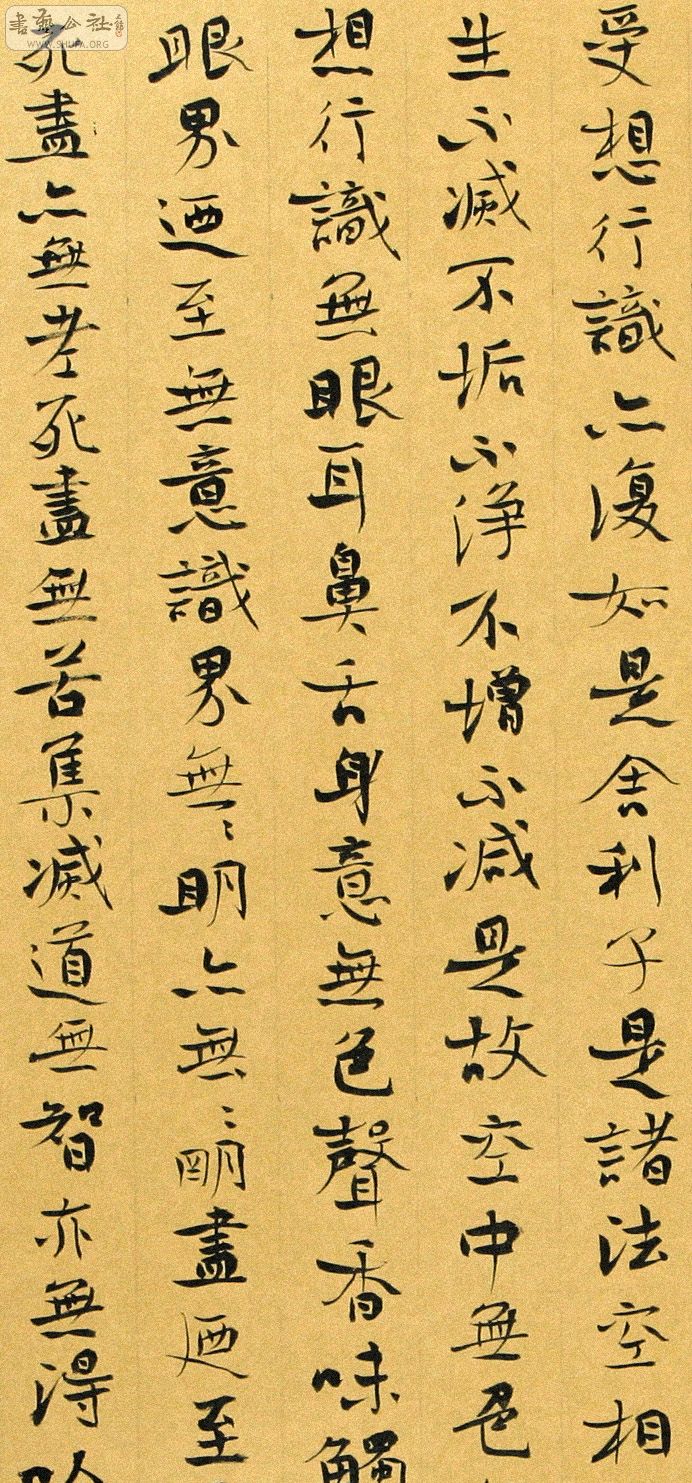 受想行識亦復如是舍利子是諸法空相
生不滅不垢不淨不增不減是故空中無色
想行識無眼耳鼻舌身意無色聲香味觸
眼界迺至無意識界無〻明亦無〻明盡迺至
死盡亦無老死盡無苦集滅道無智亦無得
書藝公社
WWW.SHUFA.ORG